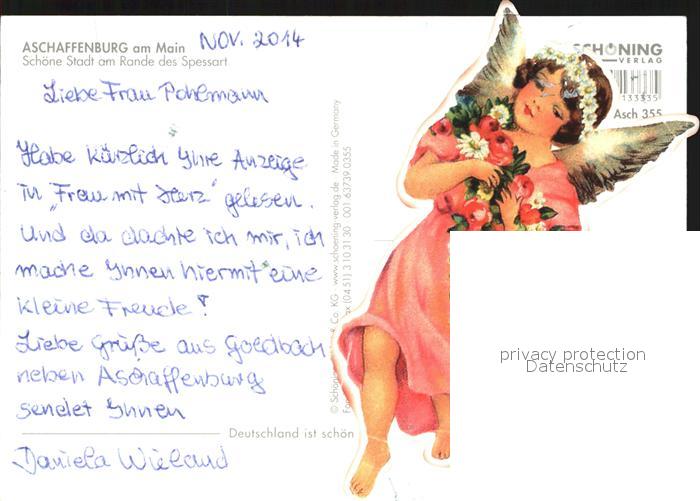 ASCHAFFENBURG am Main
NOV. 2014
Schöne Stadt am Rande des Spessart
SCHÖNING
VERLAG
133335
Asch 355
Liebe Frau Pohlmann
Habe kürzlich Ihre Anzeige
in "Frau mit Herz" gelesen.
Und da dachte ich mir, ich
mache Ihnen hiermit eine
kleine Freude!
Liebe Grüße aus Goldbach
neben Aschaffenburg
sendet Ihnen
Daniela Wieland
Deutschland ist schön
& Co. KG · www.schoening-verlag.de · Made in Germany
(04 51) 3 10 31 30 · 001 63739 0355
privacy protection
Datenschutz